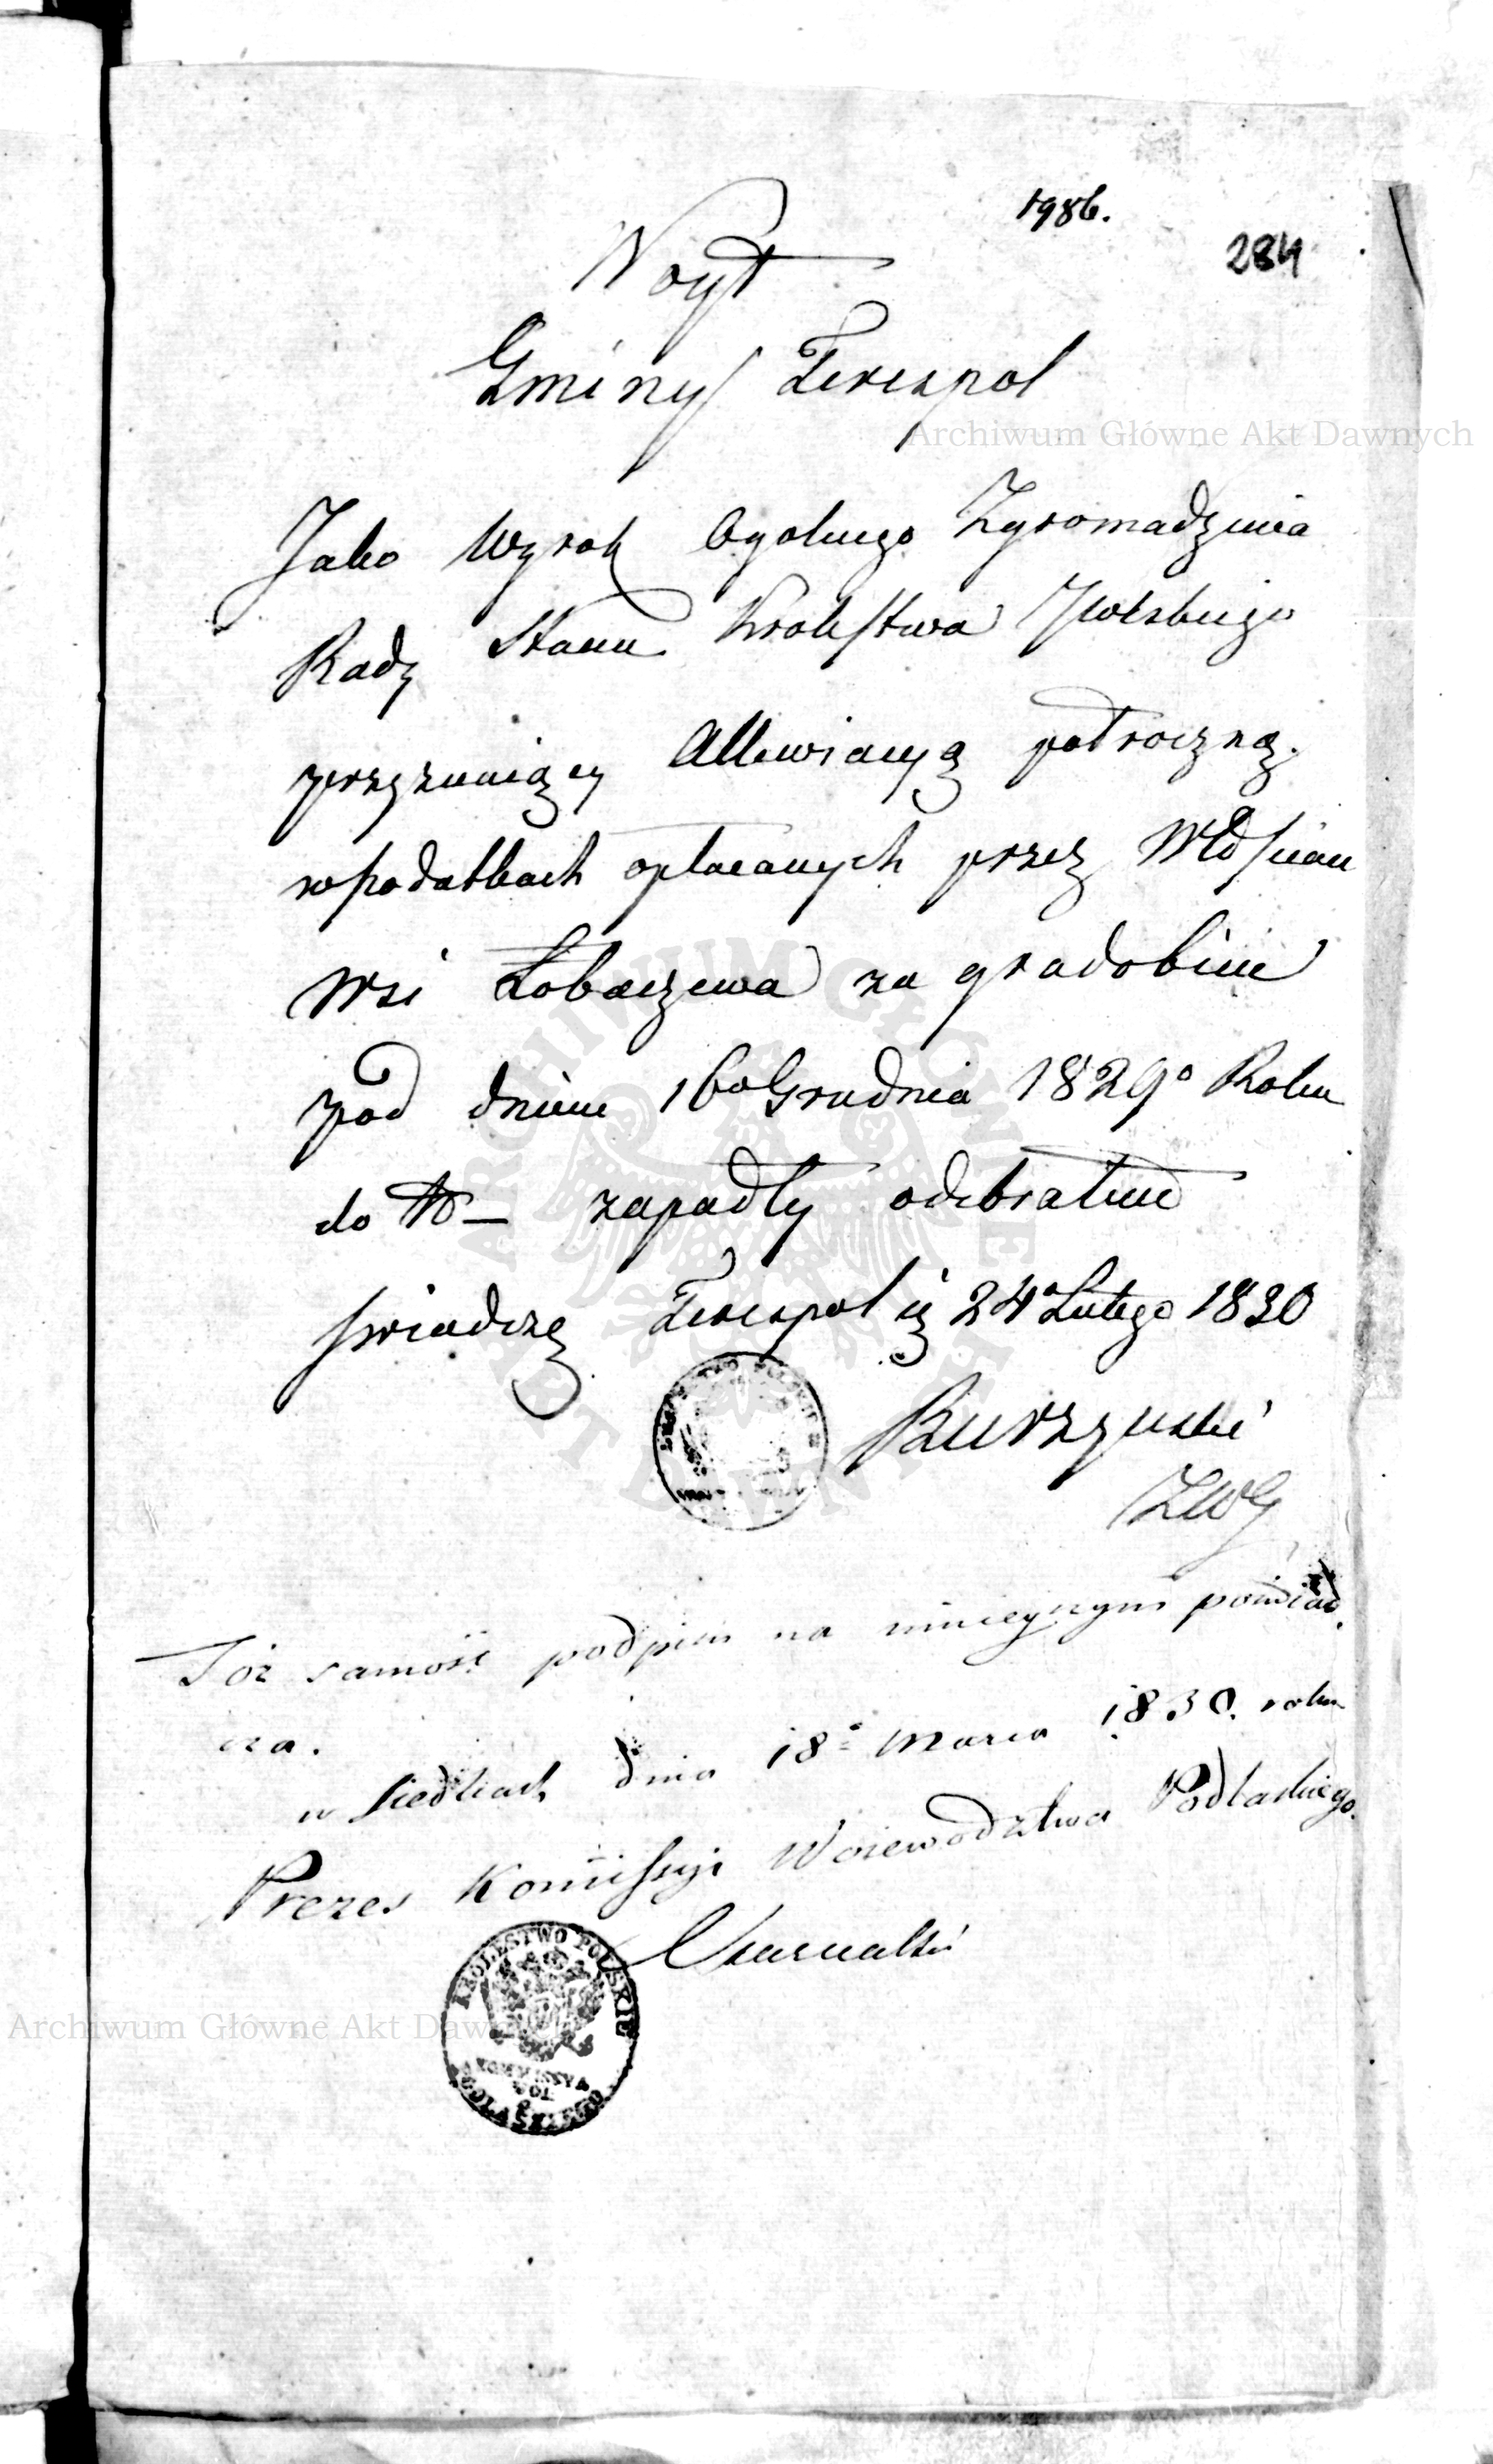 1986.
284
Woyt
Gminy Terespol
Jako Wyrok Ogolnego Zgromadzenia
Rady Stanu Krolestwa Polskiego
przyznaiący Allewiacyą połroczną
w podatkach opłacanych przez Włoscian
Wsi Łobaczewa za gradobicie
pod dniem 16o Grudnia 1829o Roku
do N– zapadły odebrałem
swiadczę Terespol 24 Lutego 1830
ZWG
Toż samość podpisu na ninieyszym poświad
cza.
w Siedlcach dnia 18o Marca 1830. roku
Prezes Kommissyi Woiewodztwa Podlaskiego.
KROLESTWO POLSKIE
KOMMISSYA
WOI.
PODLASKIEGO
Archiwum Główne Akt Dawnych
ARCHIWUM GŁÓWNE AKT DAWNYCH
Archiwum Główne Akt Daw